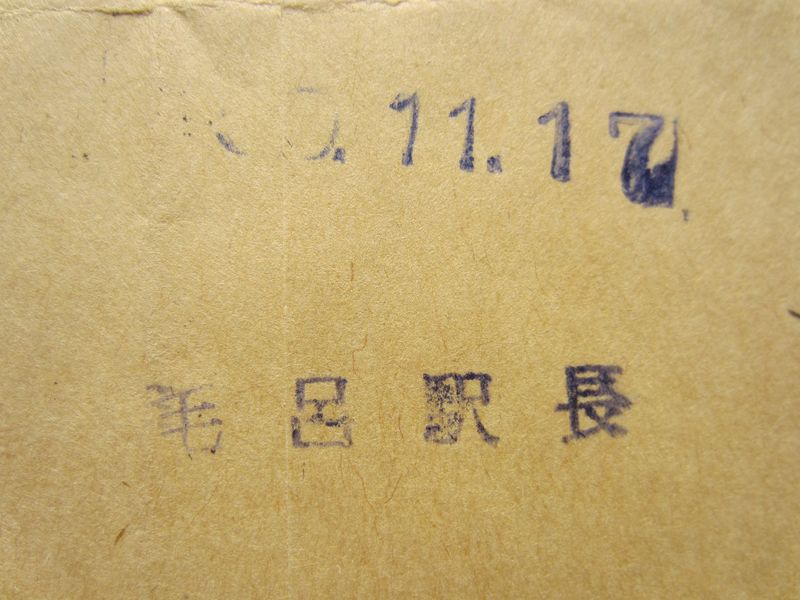 .11.17
毛呂駅長